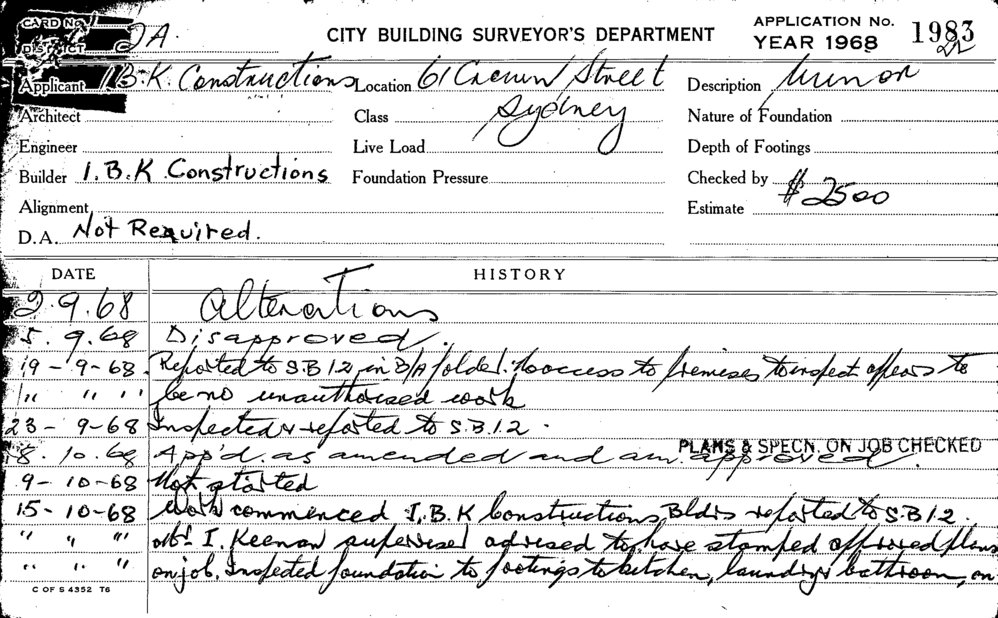 CARD No.
DISTRICT 2A.
CITY BUILDING SURVEYOR'S DEPARTMENT
APPLICATION No. 1983
YEAR 1968 22
Applicant I.B.K. Constructions Location 61 Crown Street Description Minor
Architect Class Sydney Nature of Foundation
Engineer Live Load Depth of Footings
Builder I.B.K Constructions Foundation Pressure Checked by
Alignment Estimate $2500
D.A. Not Required.
DATE HISTORY
2.9.68 Alterations
5.9.68 Disapproved.
19-9-68. Reported to S.B 12 in B/A folder. No access to premises to inspect appears to
" " " be no unauthorised work
23-9-68 Inspected & reported to S.B.12.
8.10.68 App'd. as amended and am. approved. PLANS & SPECN. ON JOB CHECKED
9-10-68 Not started
15-10-68 Work commenced I.B.K Constructions Bldrs reported to S.B 12.
" " " I. Keenan supervisor advised to have stamped approved plans
" " " on job. Inspected foundation to footings to kitchen, laundry & bathroom, on
C OF S 4352 T6